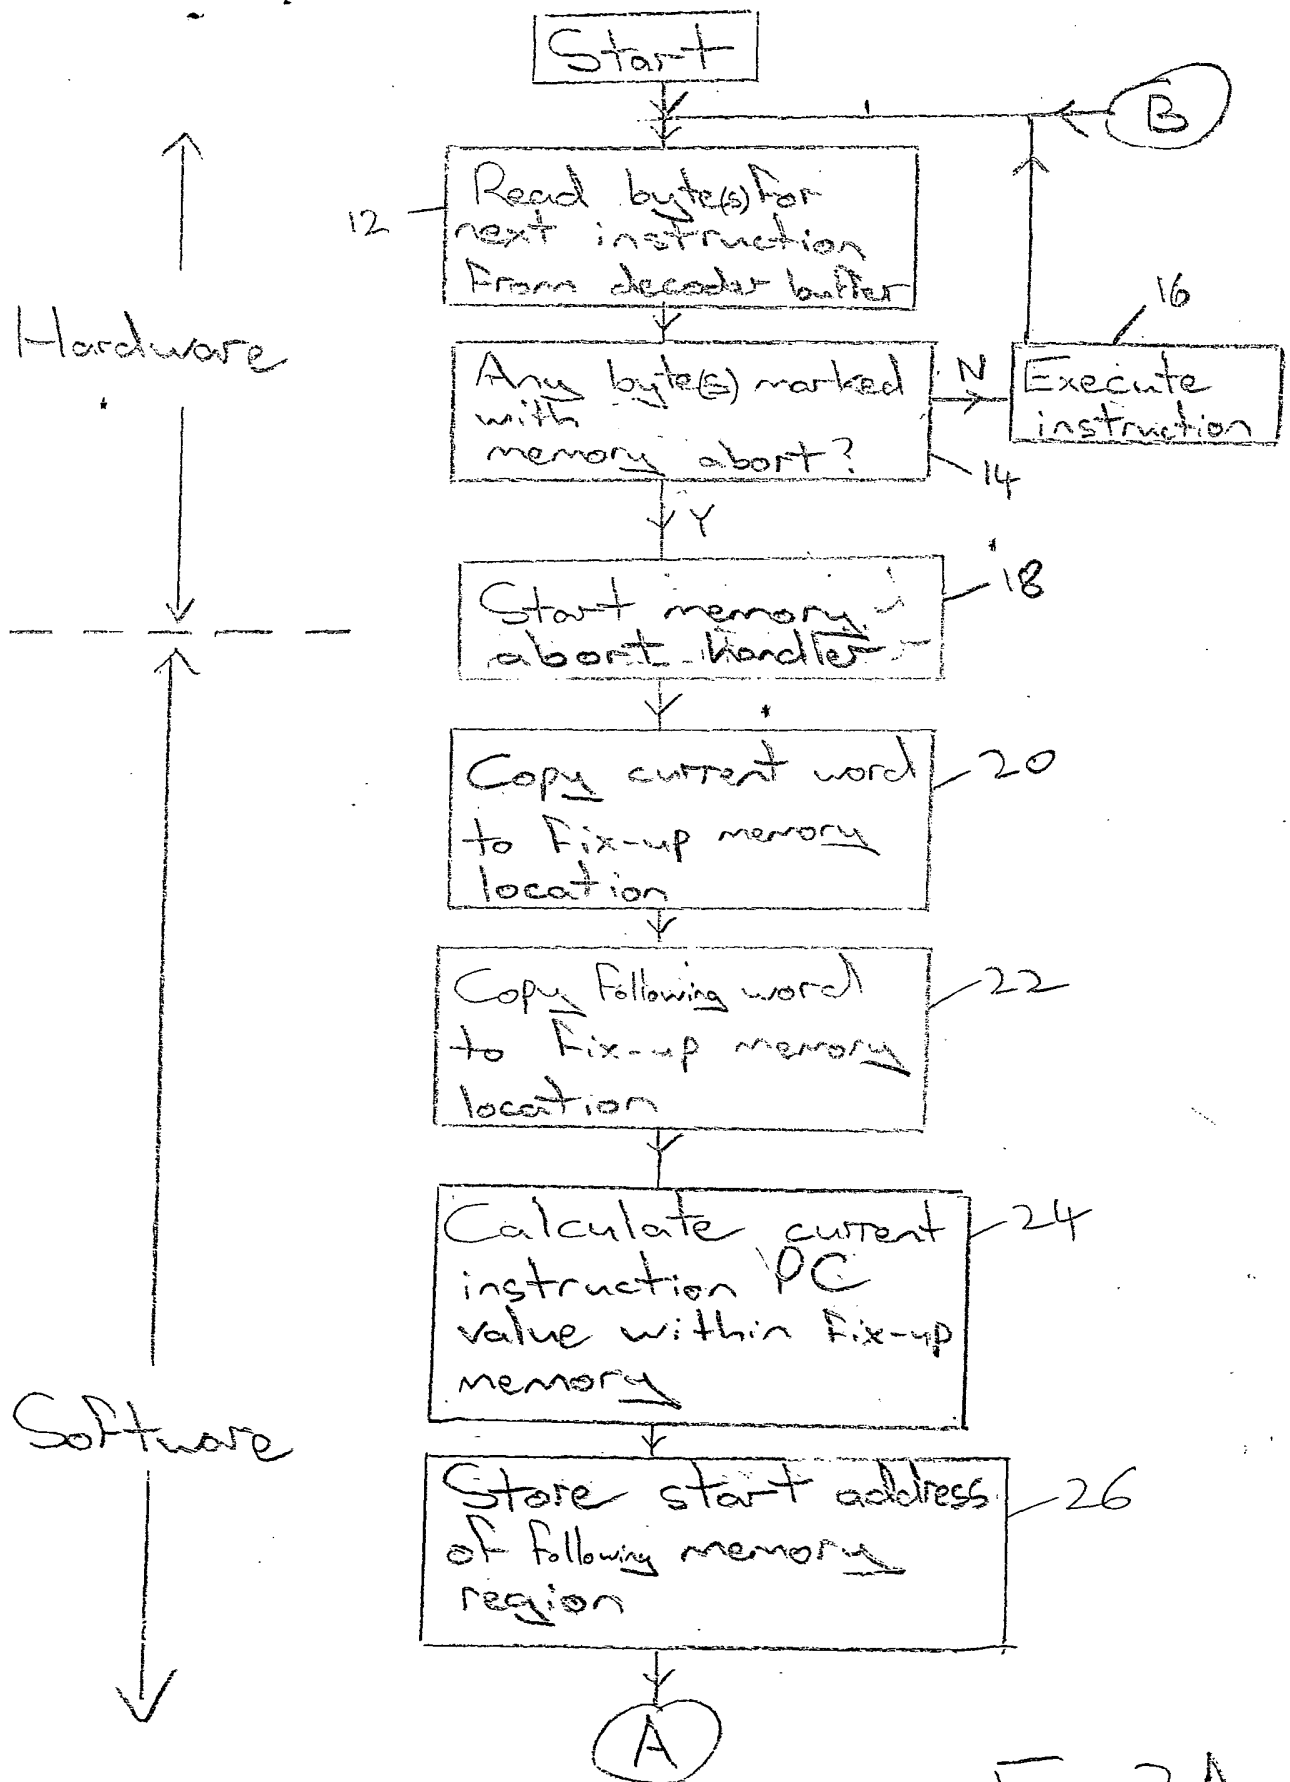 Start
B
12
Read byte(s) for
next instruction
from decoder buffer
16
Hardware
Any byte(s) marked
with
memory abort?
N
Execute
instruction
14
Y
18
Start memory
abort handler
Copy current word
to fix-up memory
location
20
Copy following word
to fix-up memory
location
22
Calculate current
instruction PC
value within fix-up
memory
24
Software
Store start address
of following memory
region
26
A